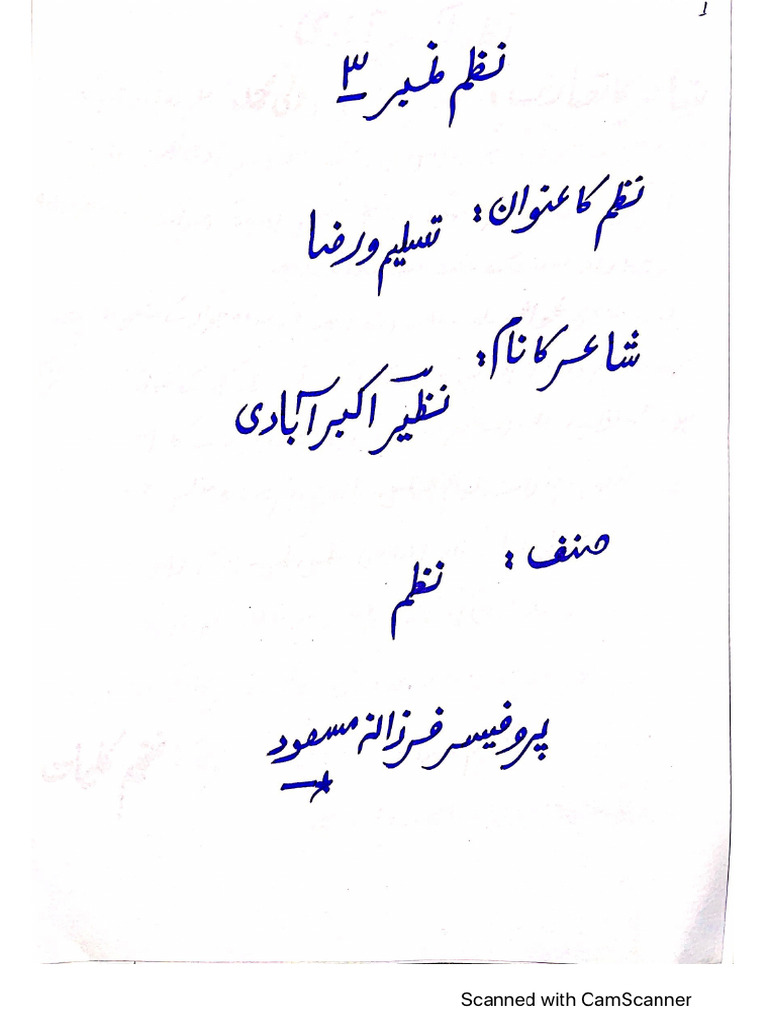 ۱
نظم نمبر ۳
نظم کا عنوان :
تسلیم و رضا
شاعر کا نام :
نظیرؔ اکبر آبادی
صنف :
نظم
پروفیسر فرزانہ مسعود
Scanned with CamScanner